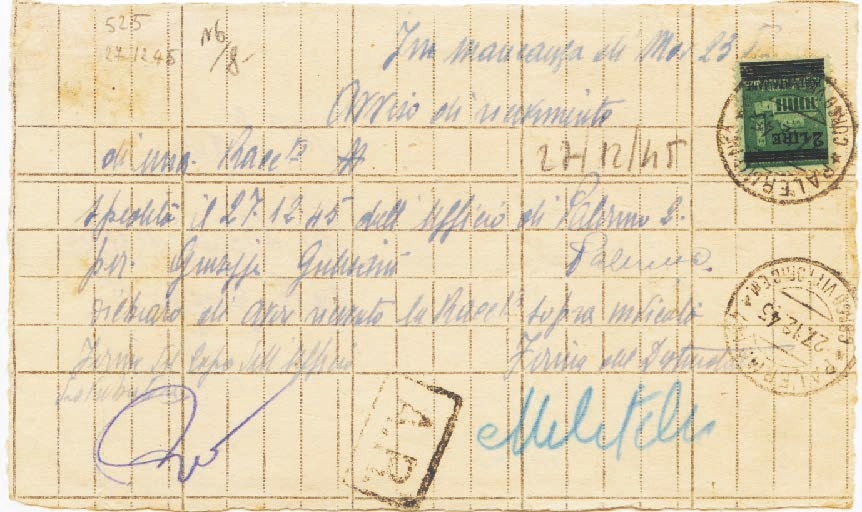 525
27 12 45
N6
/8-
In mancanza di Mod 23
Avviso di ricevimento
di una Racc.ta A
27/12/45
spedita il 27.12.45 dall'ufficio di Palermo 2.
per Giuseppe
Palermo.
dichiaro di aver ricevuto la Racc.ta sopra indicata
Firma del Capo dell'Ufficio
Firma del
distributore
A.R.
2 LIRE
PALERMO
27.12.45
PALERMO